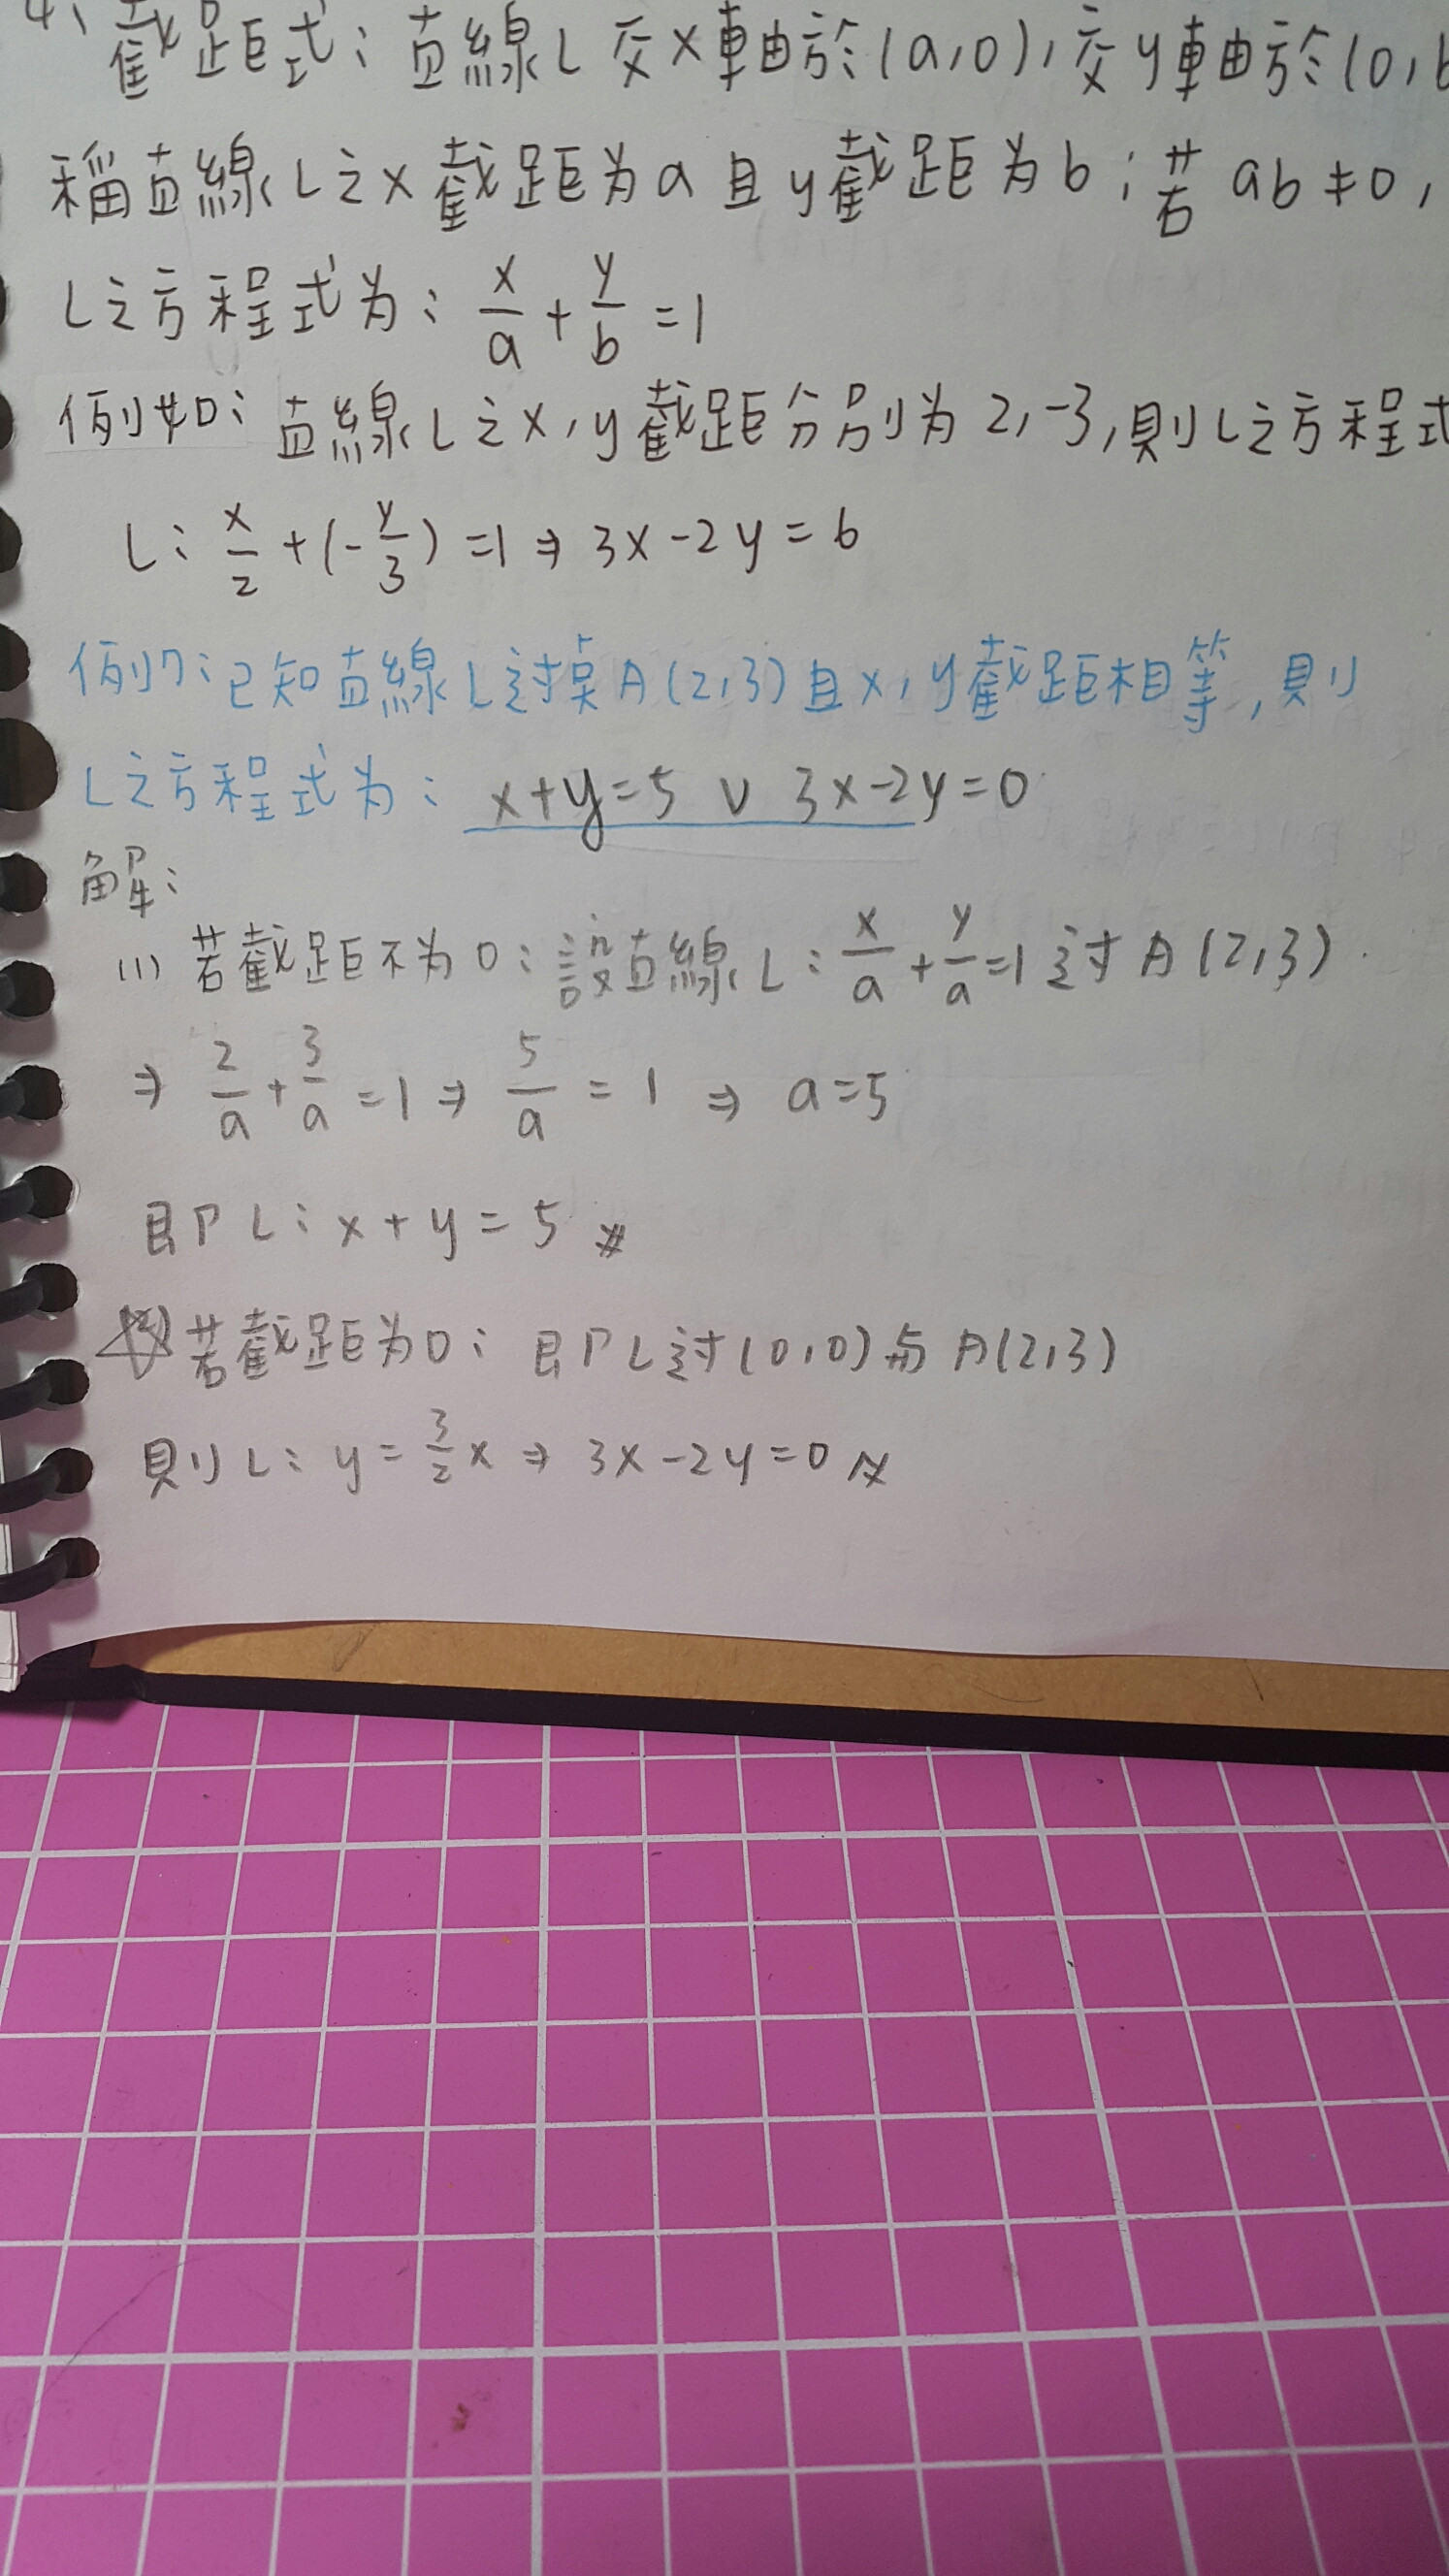 4、截距式：直線L交x軸於(a,0),交y軸於(0,b
稱直線L之x截距為a且y截距為b；若ab≠0,
L之方程式為：x/a + y/b = 1
例如：直線L之x,y截距分別為2,-3,則L之方程式
L：x/2 + (-y/3) = 1 ⇒ 3x-2y=6
例7：已知直線L過點A(2,3)且x,y截距相等,則
L之方程式為：x+y=5 ∨ 3x-2y=0
解：
(1) 若截距不為0：設直線L：x/a + y/a = 1 過A(2,3)
⇒ 2/a + 3/a = 1 ⇒ 5/a = 1 ⇒ a=5
即L：x+y=5
若截距為0：即L過(0,0)與A(2,3)
則L：y=3/2x ⇒ 3x-2y=0